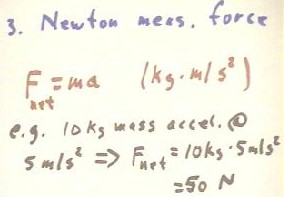 3. Newton meas. force
F net = ma (kg·m/s²)
e.g. 10 kg mass accel. @
5 m/s² => F net = 10kg·5m/s²
=50 N